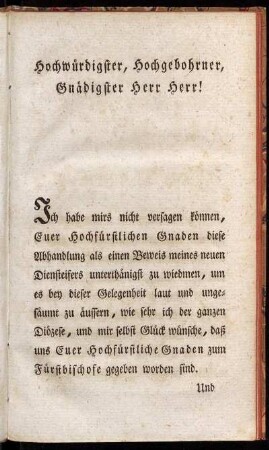 Hochwürdigster, Hochgebohrner,
Gnädigster Herr Herr!
Ich habe mirs nicht versagen können,
Euer Hochfürstlichen Gnaden diese
Abhandlung als einen Beweis meines neuen
Diensteifers unterthänigst zu wiedmen, um
es bey dieser Gelegenheit laut und unge-
säumt zu äussern, wie sehr ich der ganzen
Diözese, und mir selbst Glück wünsche, daß
uns Euer Hochfürstliche Gnaden zum
Fürstbischofe gegeben worden sind.
Und